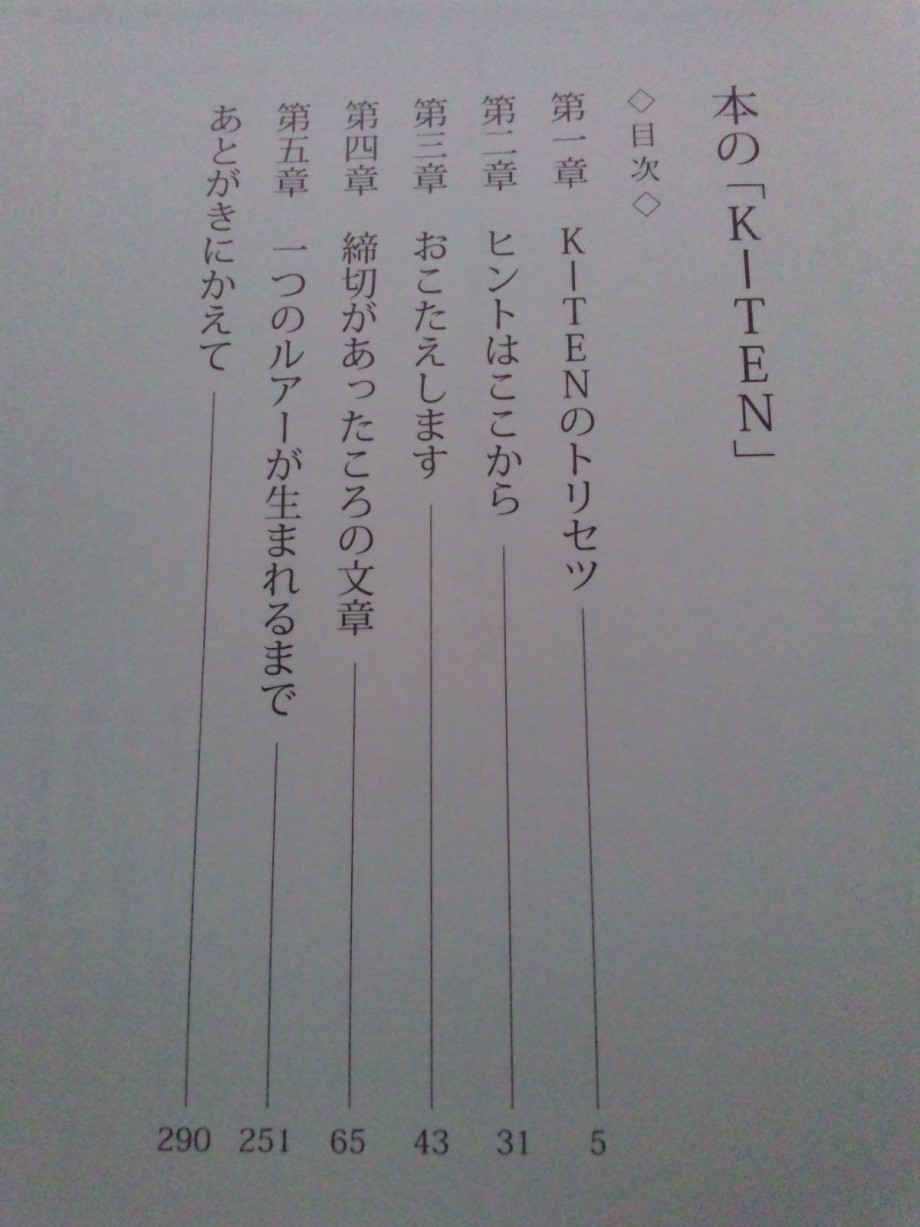 本の「KITEN」
◇目次◇
第一章 KITENのトリセツ 5
第二章 ヒントはここから 31
第三章 おこたえします 43
第四章 締切があったころの文章 65
第五章 一つのルアーが生まれるまで 251
あとがきにかえて 290